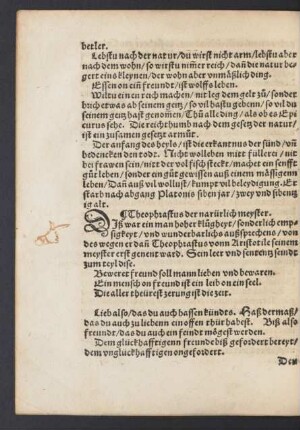 betler.
Lebstu nach der natur/du wirst nicht arm/lebstu aber
nach dem wohn/so wirstu nim̄er reich/dañ die natur be-
gert eins kleynen/der wohn aber vnmäßlich ding.
Essen on ein freundt/ist wolffs leben.
Wiltu einen reich machen/nit leg dem gelt zů/sonder
brich etwas ab seinem geitz/so vil hastu gebenn/so vil du
seinem geitz hast genom̄en/Thů all ding/als ob es Epi
curus sehe. Die reichthumb nach dem gesetz der natur/
ist ein zusamen gesetzt armůt.
Der anfang des heyls/ist die erkantnus der sünd/vñ
bedencken den todt. Nicht wolleben mitt füllerei/nitt
bei frawen sein/nitt der vol fisch steckt/machet ein senfft
gůt leben/sonder ein gůt gewissen auß einem mässigenn
leben/Dañ auß vil wollust/kumpt vil beleydigung. Er
starb nach abgang Platonis siben jar/zwey vnd sibentz
ig alt.
Theophrastus der natürlich meyster.
Diß war ein man hoher klůgheyt/sonderlich emp
sigkeyt/vnd wunderbarlichs außsprechens/von
des wegen er dañ Theophrastus vom Aristotile seinem
meyster erst genent ward. Sein leer vnd sentenz send
zum teyl dise.
Beweret freund soll mann lieben vnd bewaren.
Ein mensch on freund ist ein leib on ein seel.
Die aller theürest zerung ist die zeit.
Lieb also/das du auch hassen kündts. Haß dermaß/
das du auch zu liebenn ein offen thür habest. Biß also
freundt/das du auch ein feindt mögest werden.
Dem glückhafftigenn freunde biß gefordert bereyt/
dem vnglückhafftigen ongefordert.
Den